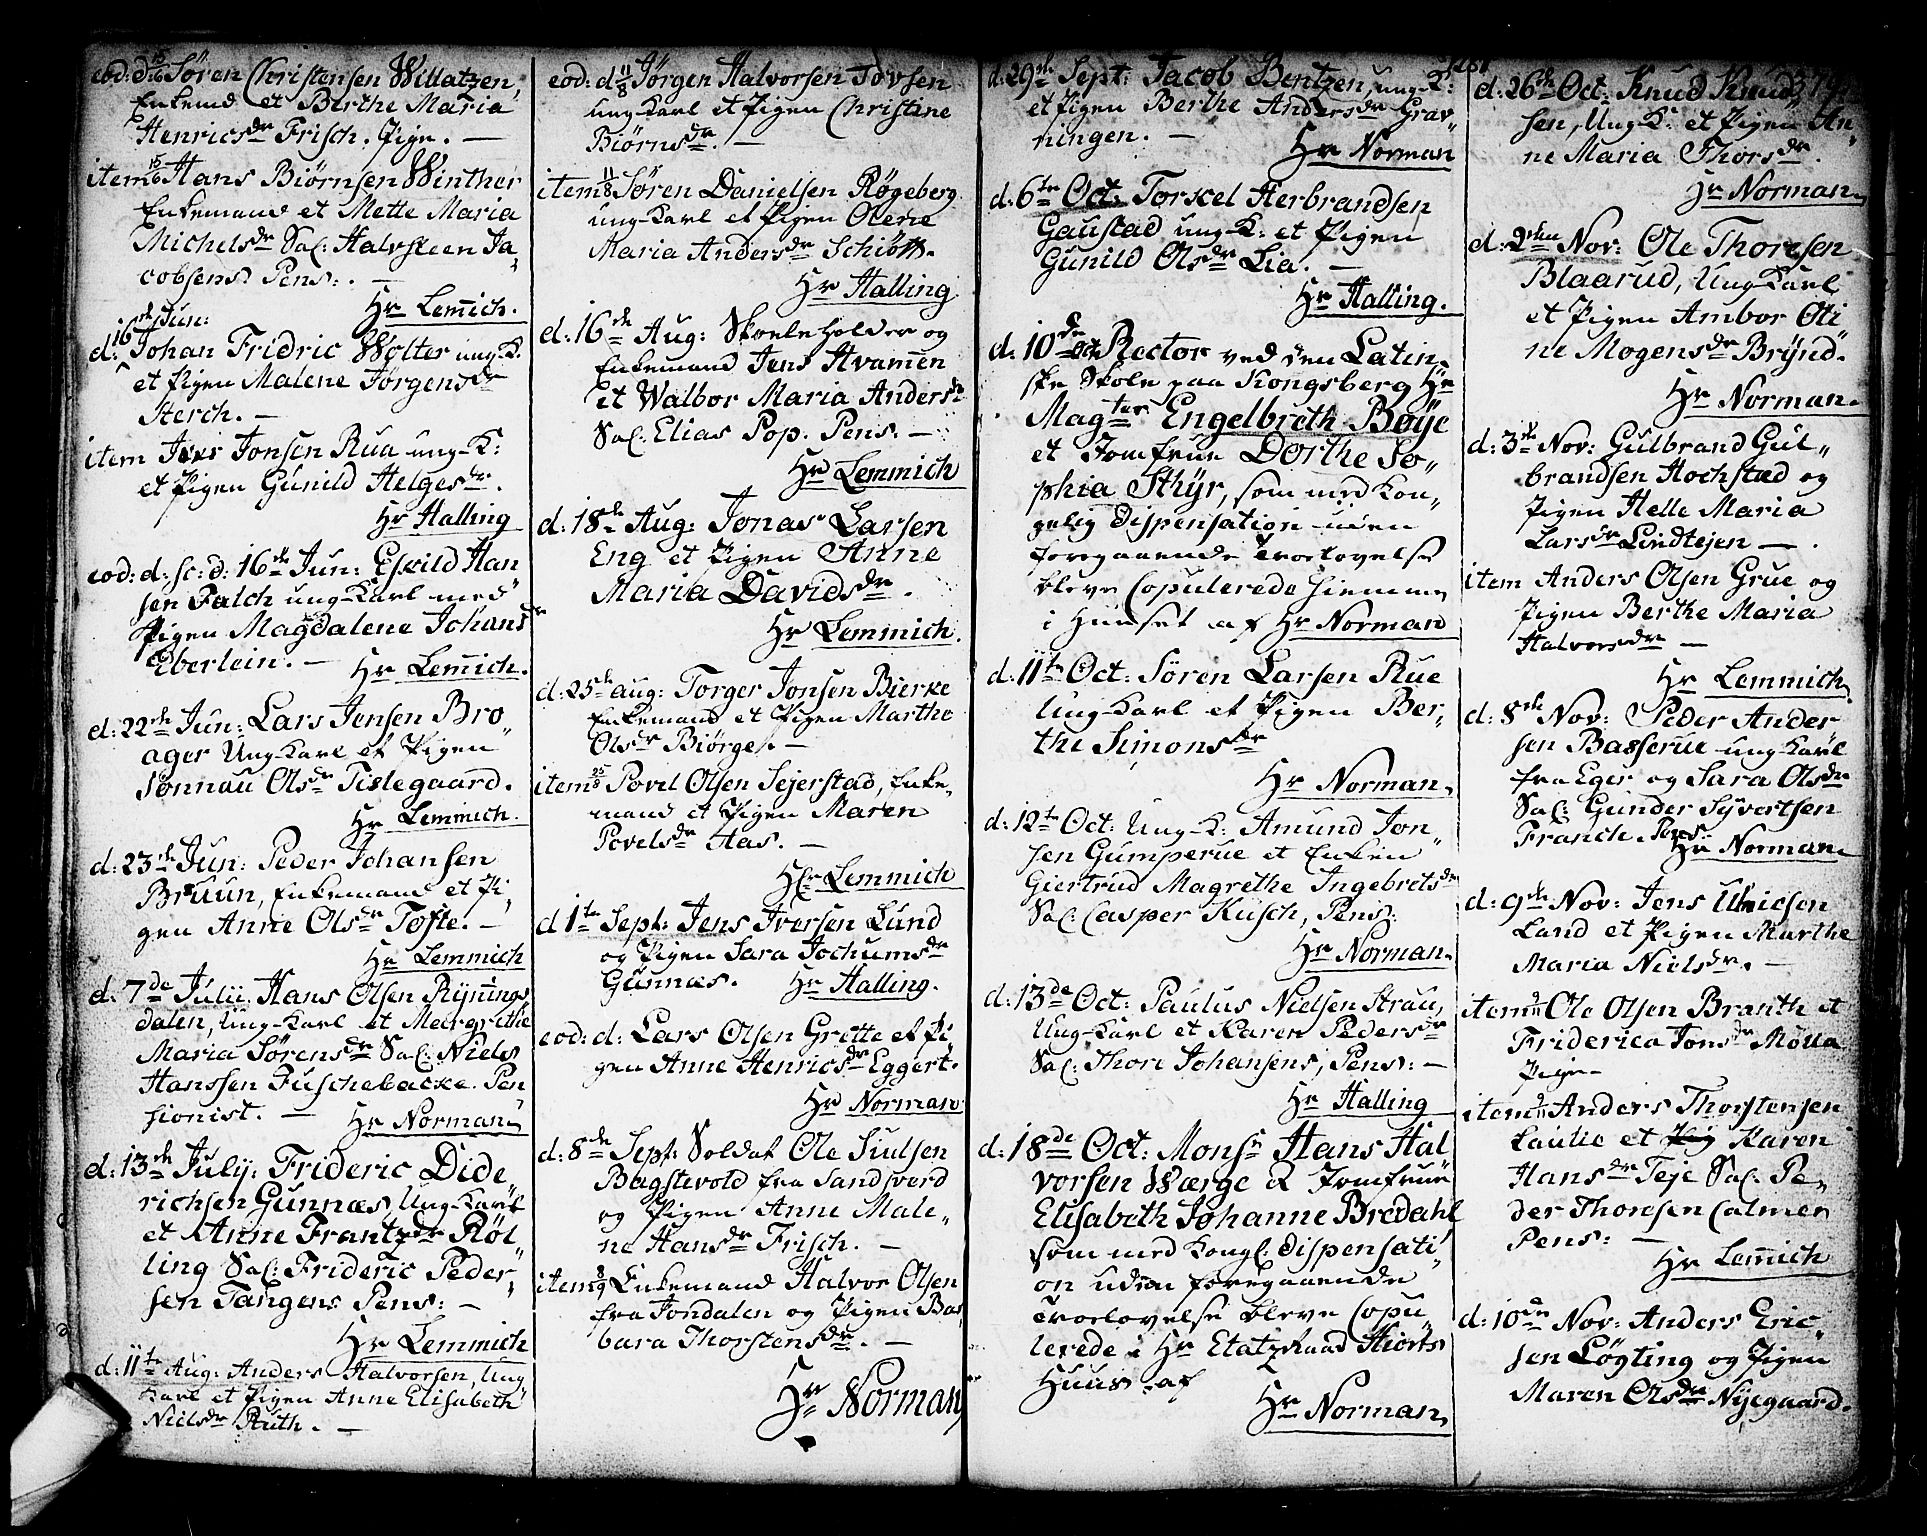 eod: d 15/6 Sören Christensen Willatzen,
Enkemd et Birthe Maria
Henricsdr Frisch. Pige. —
item 15/6 Hans Biörnsen Winther
Enkemand et Mette Maria
Michelsdr Sal: Halvsteen Ja„
cobsens Pens: . —
Hr Lemich.
d: 16de Jun:
Johan Fridric Wolter ung K.
et Pigen Malene Jørgensdr
Sterch. —
item Iver Jonsen Rua ung-K:
et Pigen Gunild Helgesdr.
Hr Halling
eod: d: sc: d: 16de Jun: Eskild Han
sen Falch ung-Karl med
Pigen Magdalene Johansdr
Eberlein. — Hr Lemich.
d: 22de Jun: Lars Jensen Bro„
ager Ung-Karl et Pigen
Sonnau Olsdr Tislegaard.
Hr Lemmich.
d: 23de Jun: Peder Johansen
Bruun, Enkemand et Pi„
gen Anne Olsdr Tofte. —
Hr Lemmich
d: 7de Julii Hans Olsen Rynings
dalen, Ung-Karl et Meergrethe
Maria Sörensdr Sal: Niels
Hanssen Puschebacke. Pen
sionist. — Hr Norman
d: 13de July: Frideric Dide„
richsen Gunnæs, Ung-Karl
et Anne Frantzdr Röl„
ling Sal: Frideric Peder„
sen Tangens Pens: —
Hr Lemmich
d: 11te Aug: Anders Halvorsen, Ung
Karl et Pigen Anne Elisabeth
Nielsdr Ruth. —
eod: d 11/8 Jörgen Halvorsen Tovsen
ung-Karl et Pigen Christine
Biörnsdr. —
item 11/8 Sören Danielsen Røgeberg
ung-Karl et Pigen Olene
Maria Andersdr Schiøtt.
Hr Halling
d: 16de Aug: Skoeleholder og
Enkemand Jens Hvamen
et Walbor Maria Andersdr
Sal: Elias Pop. Pens. —
Hr Lemmich
d: 18de Aug: Jonas Larsen
Eng et Pigen Anne
Maria Davidsdr.
Hr Lemmich.
d: 25de aug: Torger Jonsen Bierke
Enkemand et Pigen Marthe
Olsdr Biörge. —
item 25/8 Povel Olsen Sejerstad, Enke„
mand et Pigen Maren
Povelsdr Aas. —
Hr Lemmich
d 1te Sept: Jens Iversen Lund
og Pigen Sara Jochumsdr
Gunnæs. Hr Halling.
eod: d: Lars Olsen Grette et Pi
gen Anne Henricsdr Eggert.
Hr Norman
d: 8de Sept: Soldat Ole Siulsen
Bagstevold fra Sandsverd
og Pigen Anne Male„
ne Hansdr Frisch. —
item 8/9 Enkemand Halvor Olsen
fra Jondalen og Pigen Bar
bara Thorstensdr. —
Hr Norman
d: 29de Sept: Jacob Bentzen, ung-K:
et Pigen Berthe Andersdr Grav„
ningen. —
Hr Norman
d: 6te Oct: Torkel Herbrandsen
Gaustad ung-K: et Pigen
Gunild Olsdr Lia. —
Hr Halling.
d: 10de Oct: Rector ved den Latin„
ske Skole paa Kongsberg Hr
Magter Engelbreth Boye
et Jomfrue Dorthe So„
phia Sthyr, som med Kon„
gelig Dispensation uden
foregaaende Troelovelse
bleve Copulerede hiemme
i Huuset af Hr Norman
d: 11te Oct: Sören Larsen Rue
Ung-Karl et Pigen Ber„
the Simonsdr
Hr Norman
d: 12te Oct: Ung-K: Amund Jon„
sen Gumperue et Enken
Giertrud Magrethe Ingebretsdr
Sal: Casper Kusch, Pens:
Hr Norman.
d: 13de Oct: Paulus Nielsen Strau,
Ung-Karl et Karen Pedersdr
Sal: Thore Johansens, Pens: —
Hr Halling
d: 18de Oct: Monsr Hans Hal
vorsen Værge & Jomfrue
Elisabeth Johanne Bredahl
som med Kongl: dispensati„
on uden foregaaende
Troelovelse bleve Copu„
lerede i Hr Etatzraad Hiorts
Huus af
Hr Norman
379
d: 26de Oct: Knud Knud„
sen, Ung-K: et Pigen An„
ne Maria Thorsdr.
Hr Norman
d: 2den Nov: Ole Thoresen
Blaarud, Ung-Karl
et Pigen Ambor Oli
ne Mogensdr Brynd.
Hr Norman.
d: 3de Nov: Gulbrand Gul„
brandsen Hochstad og
Pigen Helle Maria
Larsdr Lindtejen — .
item Anders Olsen Grue og
Pigen Berthe Maria
Halvorsdr —
Hr Lemmich
d: 8de Nov: Peder Ander
sen Basserue ung-Karl
fra Eger og Sara Olsdr
Sal: Gunder Syvertsen
Franch Pens.
Hr Norman
d: 9de Nov: Jens Ulricsen
Land et Pigen Marthe
Maria Nielsdr. —
item Ole Olsen Branth et
Friderica Jonsdr Mölla
Pige
item Anders Thorstensen
Laulie et Karen
Hansdr Teje Sal: Pe„
der Thoresen Calmer
Pens: —
Hr Lemich
d: 10de Nov: Anders Eric„
sen Løgting og Pigen
Maren Olsdr Nyegaard.